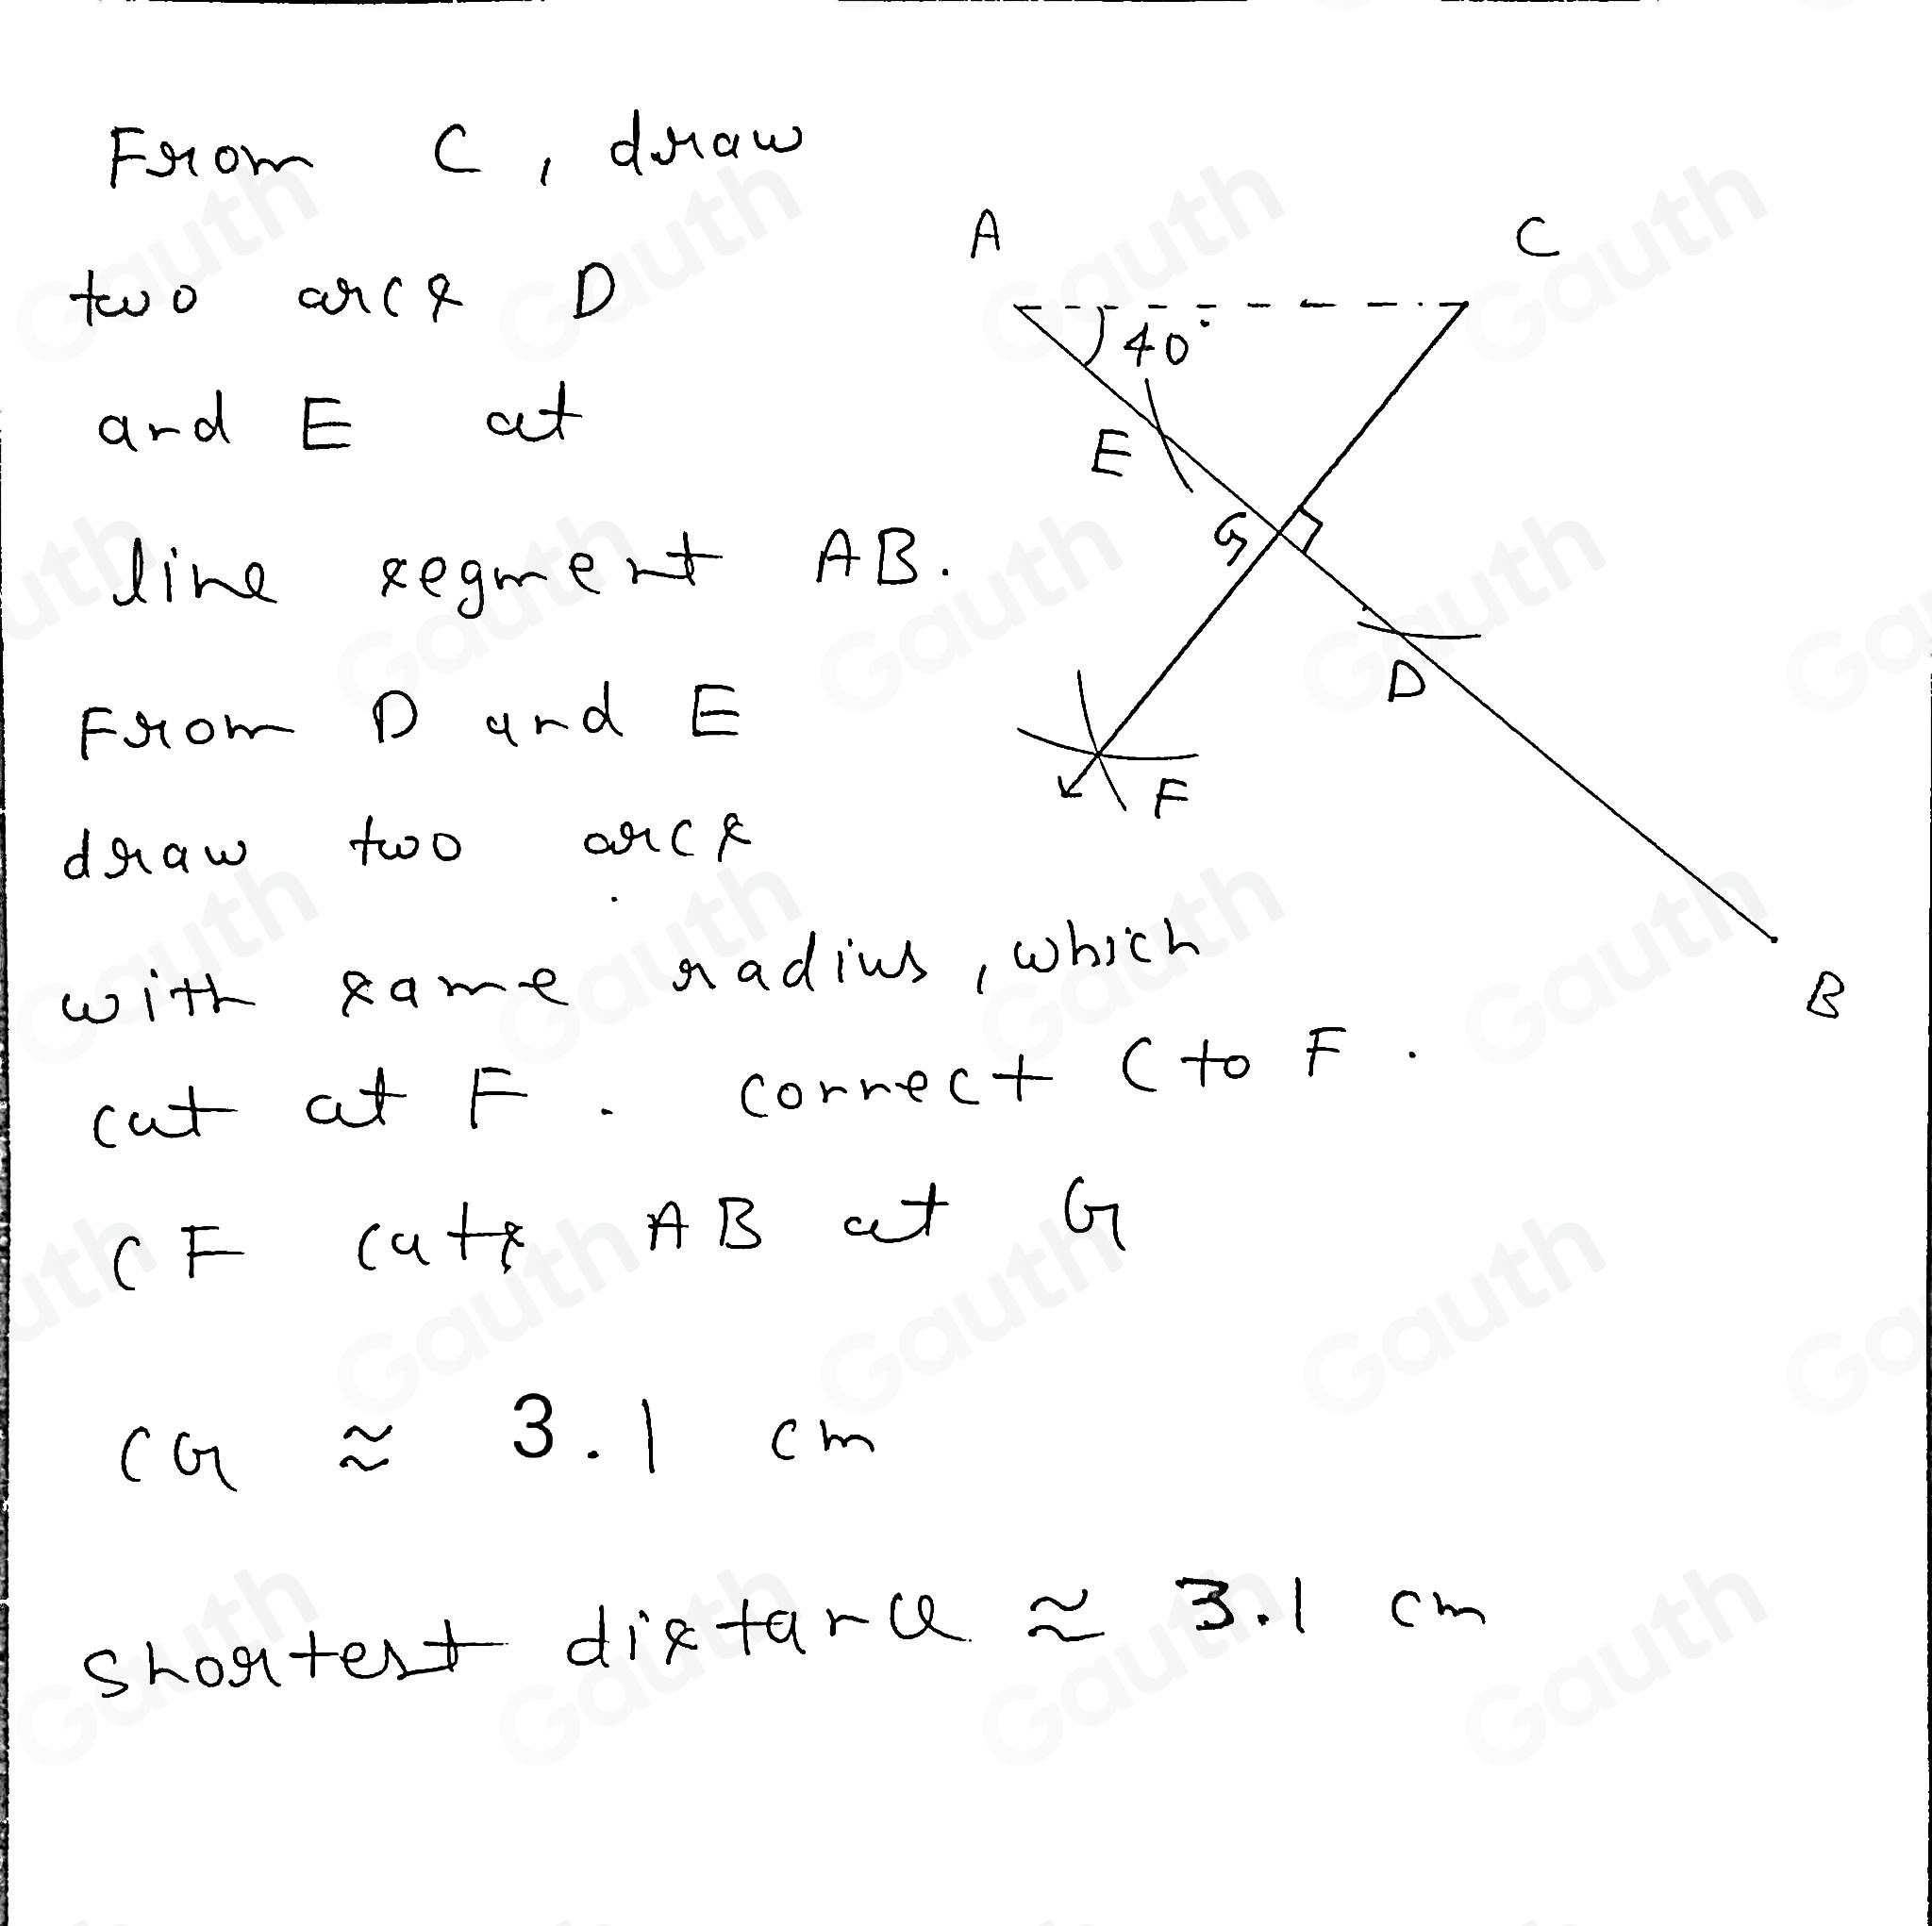 From C, draw
two arcs D
and E at
line segment AB.
From D and E
draw two arcs
with same radius, which
cut at F. connect C to F.
CF cuts AB at G
CG ≈ 3.1 cm
shortest distance ≈ 3.1 cm
A
C
40°
E
G
D
F
B
Gauth